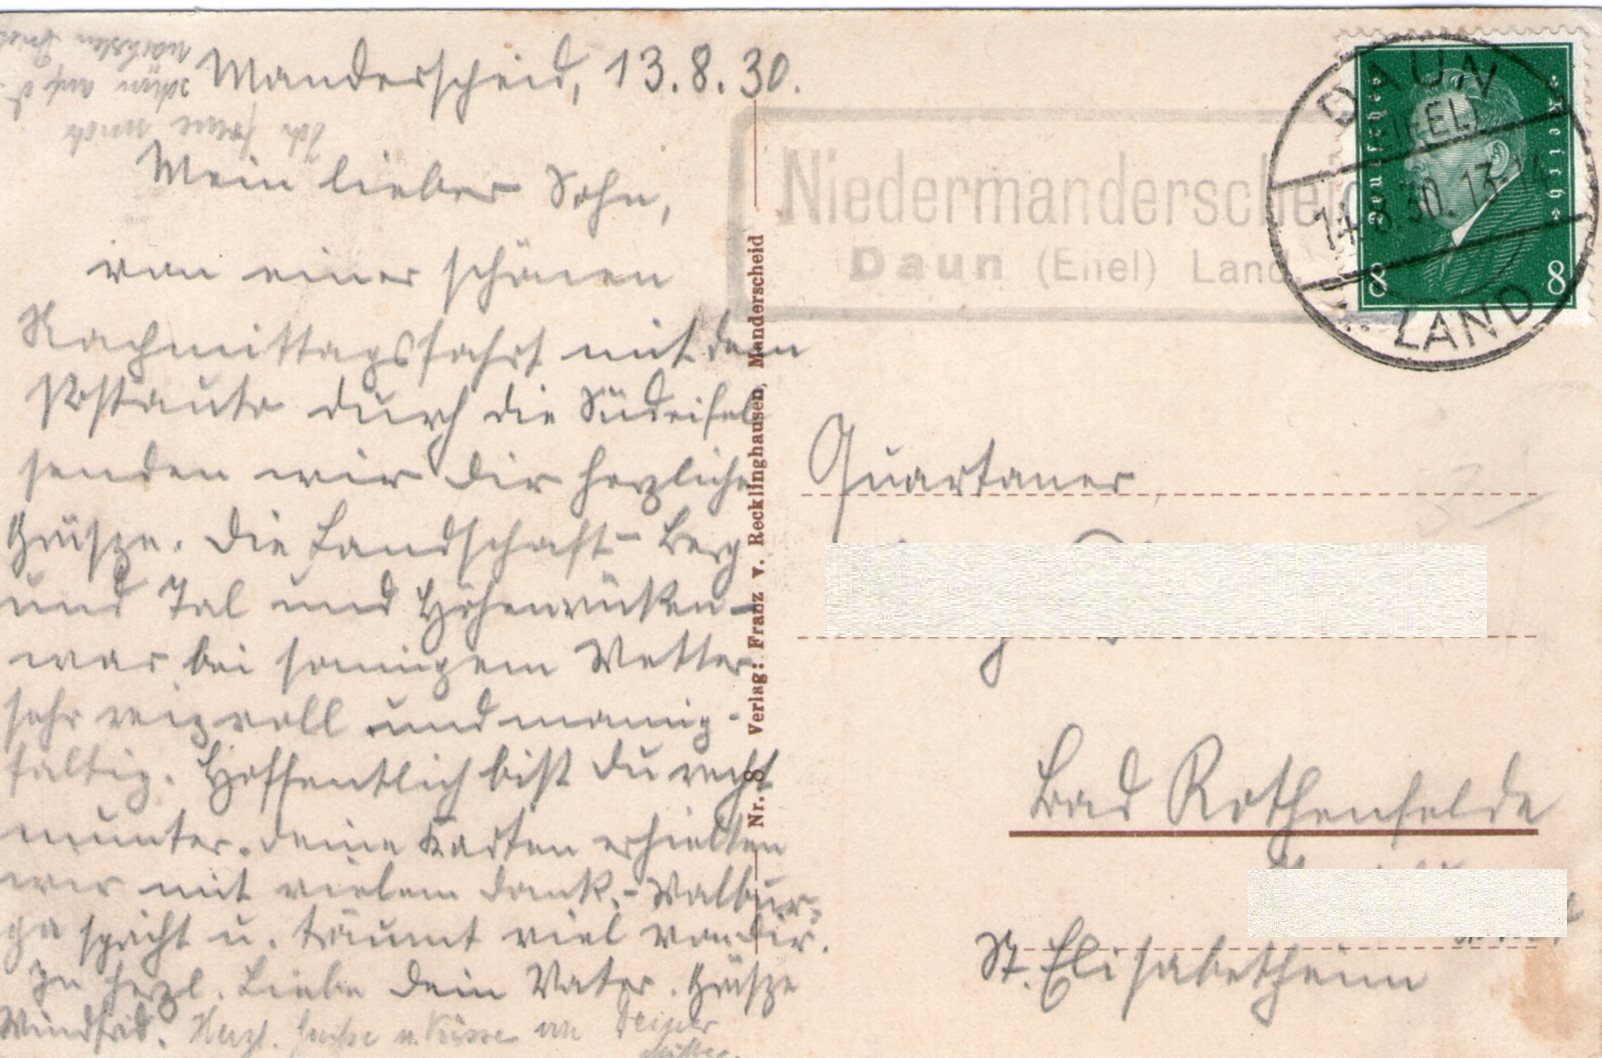 Manderscheid, 13.8.30.
Mein lieber Sohn,
von einer schönen
Nachmittagsfahrt mit dem
Postauto durch die Südeifel
senden wir Dir herzliche
Grüsze. Die Landschaft – Berg
und Tal und Höhenrücken –
war bei sonnigem Wetter
sehr reizvoll und mannig-
faltig. Hoffentlich bist Du recht
munter. Deine Karten erhielten
wir mit vielem Dank. – Walbur-
ga spricht u. träumt viel von Dir.
In herzl. Liebe Dein Vater. Grüsze
Windfrid. Herzl. Grüsse u. Küsse von Deiner
Mutter.
Ich freue mich
schon auf d.
nächsten Brief
Nr. 8 Verlag: Franz v. Recklinghausen, Manderscheid
Niedermanderscheid
Daun (Eifel) Land
DAUN
(EIFEL)
14.8.30. 13-14
LAND
Deutsches Reich
8 8
Quartaner
Bad Rothenfelde
St. Elisabetheim